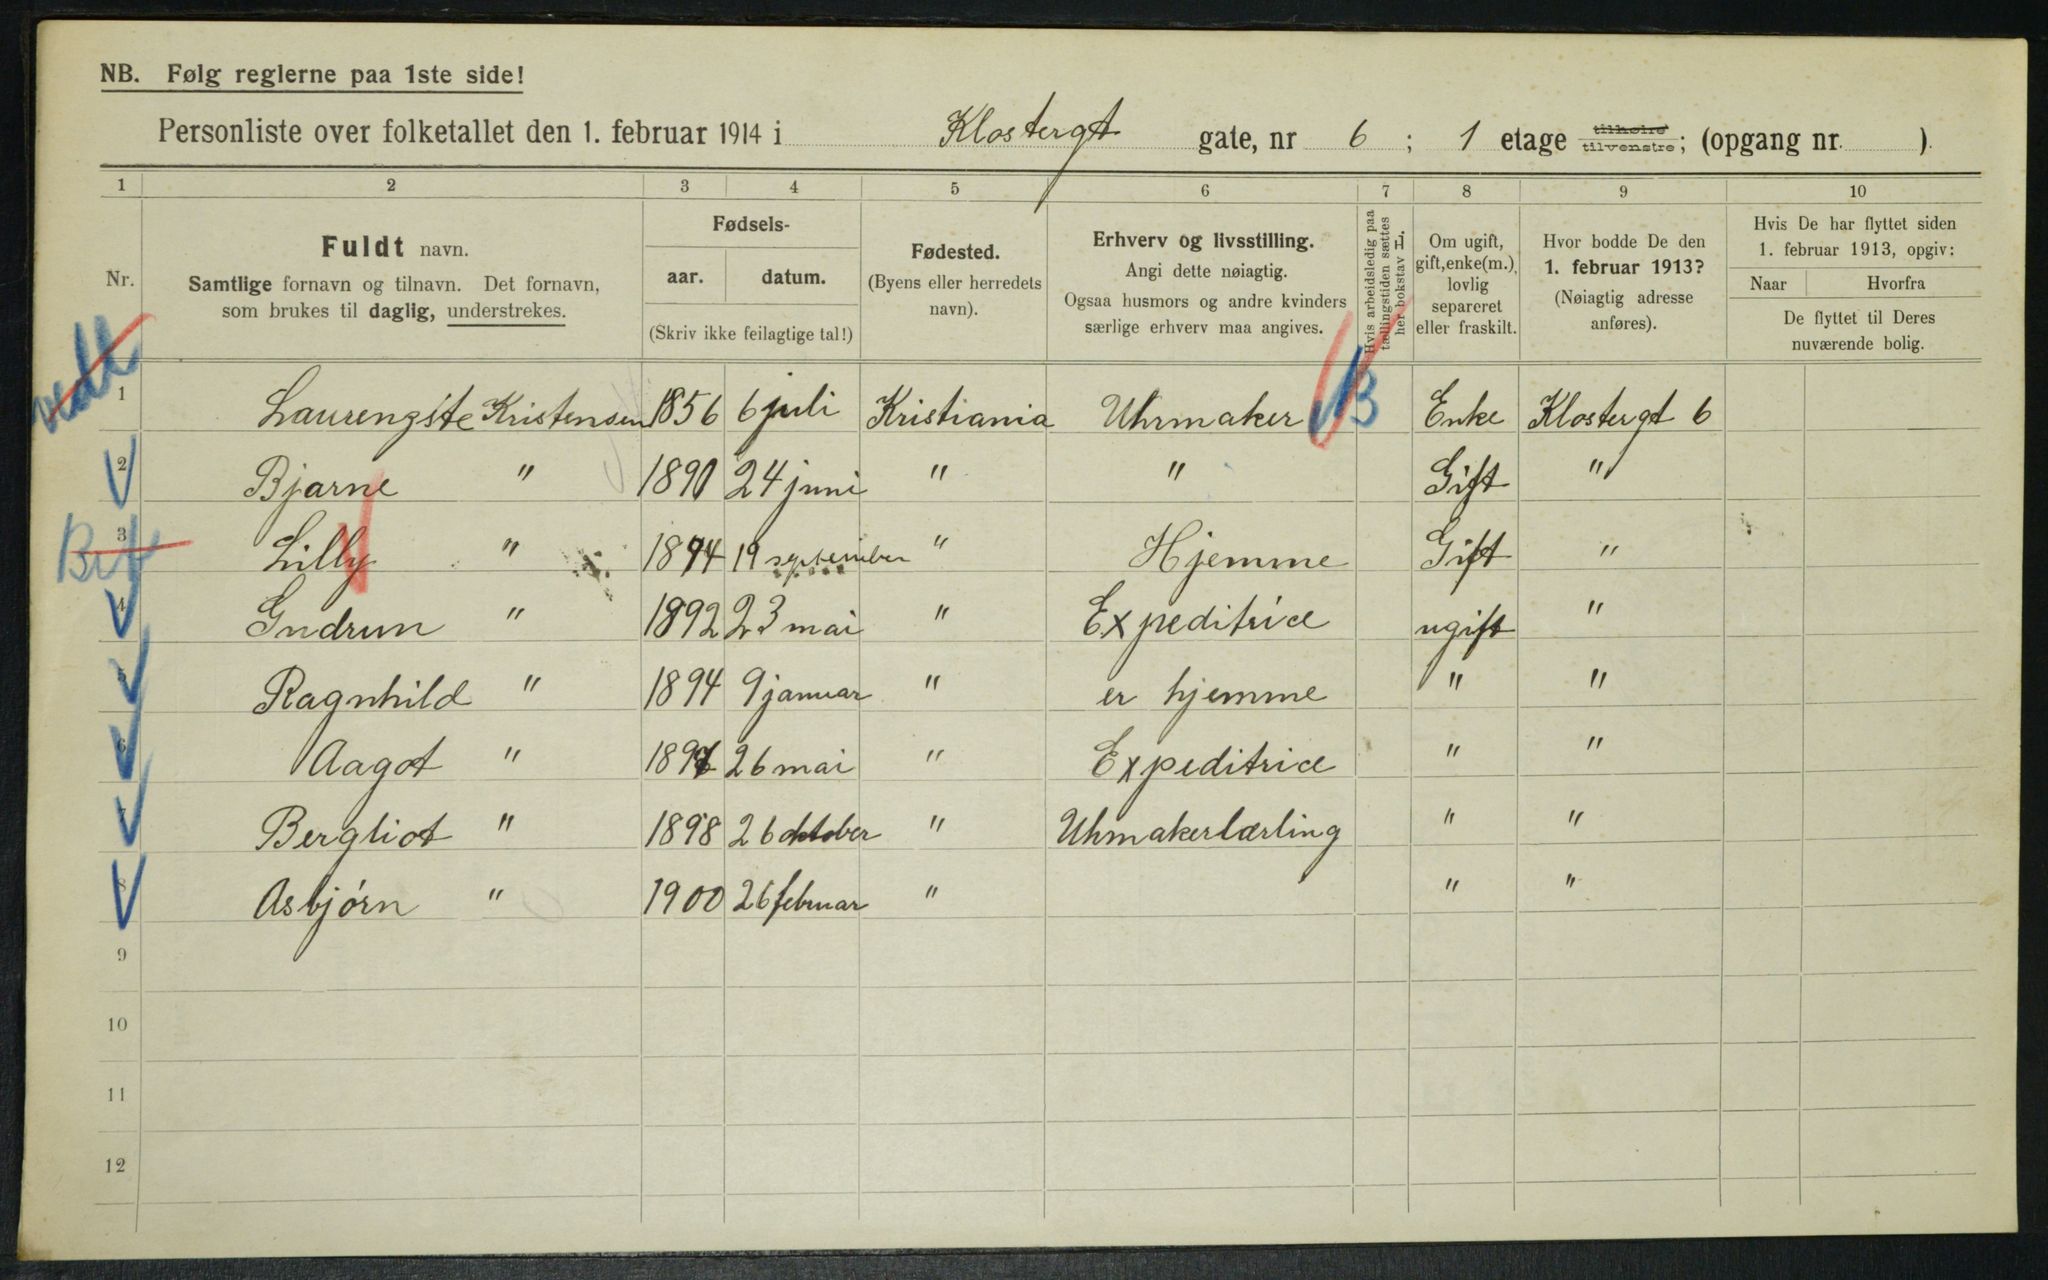 NB. Følg reglerne paa 1ste side!
Personliste over folketallet den 1. februar 1914 i Klostergt gate, nr 6 ; 1 etage tilhøire tilvenstre; (opgang nr. )
1 2 3 4 5 6 7 8 9 10
Nr.
Fuldt navn.
Samtlige fornavn og tilnavn. Det fornavn,
som brukes til daglig, understrekes.
Fødsels-
aar. datum.
(Skriv ikke feilagtige tal!)
Fødested.
(Byens eller herredets
navn).
Erhverv og livsstilling.
Angi dette nøiagtig.
Ogsaa husmors og andre kvinders
særlige erhverv maa angives.
Hvis arbeidsledig paa
tællingstiden sættes
her bokstav L.
Om ugift,
gift, enke(m.),
lovlig
separeret
eller fraskilt.
Hvor bodde De den
1. februar 1913?
(Nøiagtig adresse
anføres).
Hvis De har flyttet siden
1. februar 1913, opgiv:
Naar Hvorfra
De flyttet til Deres
nuværende bolig.
1 Laurengste Kristensen 1856 6 juli Kristiania Uhrmaker Enke Klostergt 6
2 Bjarne " 1890 24 juni " " Gift "
3 Lilly " 1894 19 september " Hjemme Gift "
4 Gudrun " 1892 23 mai " Expeditrice ugift "
5 Ragnhild " 1894 9 januar " er hjemme " "
6 Aagot " 26 mai " Expeditrice " "
7 Bergliot " 1898 26 oktober " Uhmakerlærling " "
8 Asbjörn " 1900 26 februar " " "
9
10
11
12